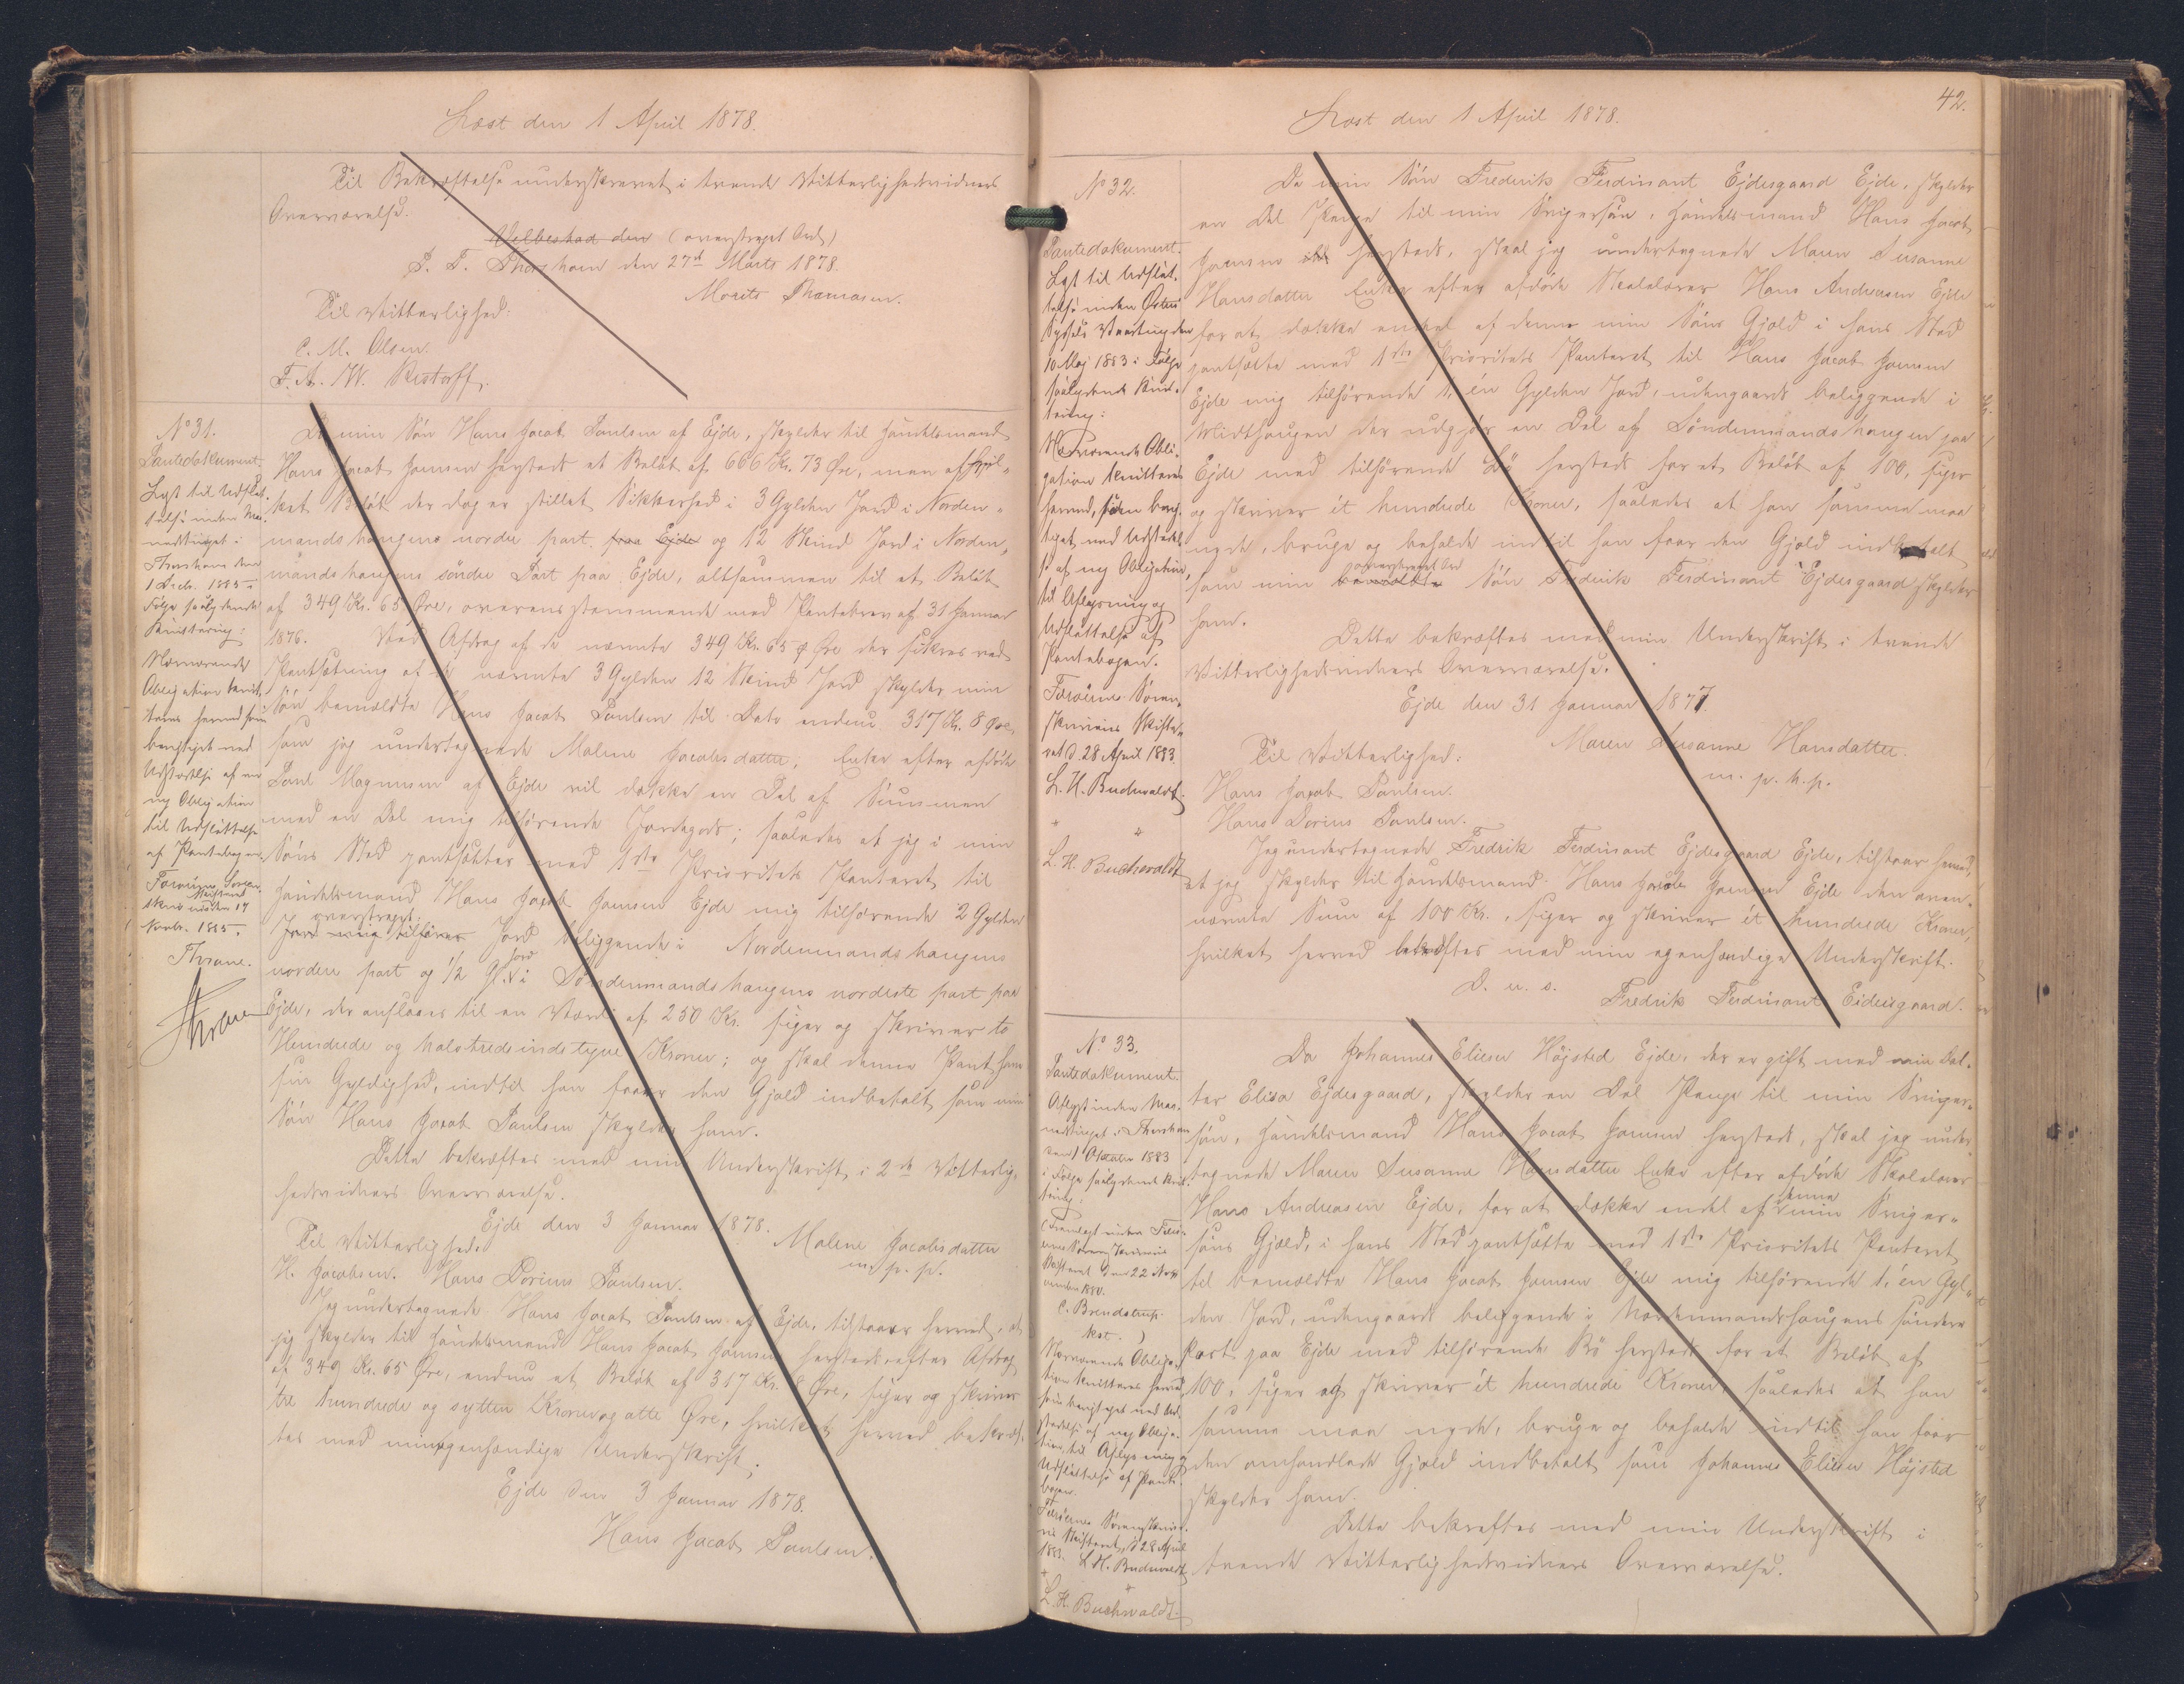 Læst den 1 April 1878.
Til Bekræftelse underskrevet i tvende Vitterlighedsvidners
Overværelse.
Velbestad den (overstreget Ord)
P. T. Thorshavn den 27d Marts 1878.
Morits Thomasen.
Til Vitterlighed:
C. M. Olsen.
F. A. W. Restorff.
No 31.
Pantedokument.
Lyst til Udslet-
telse inden Mai-
nedstinget i
Thorshavn den
1 Decbr. 1885 i
Følge saalydende
Kvittering:
Nærværende
Obligation kvit-
teres herved som
benyttet ved
Udstædelse af en
ny Obligation
til Udslettelse
af Pantebogen.
Færøernes Soren-
skriveri den 17
Novbr. 1885.
Thrane.
Thrane
Da min Søn Hans Jacob Paulsen af Ejde, skylder til Handelsmand
Hans Jacob Joensen hersteds et Beløb af 666 Kr. 73 Øre, men af hvil-
ket Beløb der dog er stillet Sikkerhed i 3 Gylden Jord i Norden-
mandshaugens nordre part paa Ejde og 12 Skind Jord i Norden-
mandshaugens söndre Part paa Ejde, altsammen til et Beløb
af 349 Kr. 65 Øre, overensstemmende med Pantebrev af 31 Januar
1876. Ved Afdrag af de nævnte 349 Kr. 65 Øre der sikres ved
Pantsætning af de nævnte 3 Gylden 12 Skind Jord skylder min
Søn bemældte Hans Jacob Paulsen til Dato endnu 317 Kr. 8 Øre
som jeg undertegnede Malene Jacobsdatter, Enke efter afdøde
Poul Magnusen af Ejde vil dække en Del af Summen
med en Del mig tilhörende Jordegods; saaledes at jeg i min
Söns Sted pantsætter med 1ste Prioritets Panteret til
Handelsmand Hans Jacob Joensen Ejde mig tilhörende 2 Gylden
overstreget:
Jord mig tilhörer Jord beliggende i Nordenmandshaugens
nordre part og 1/2 Gl. Jord i Søndenmandshaugens nordeste part paa
Ejde, der anslaaes til en Værdi af 250 Kr. siger og skriver to
Hundrede og halvtredsindstyve Kroner; og skal denne Pant have
sin Gyldighed, indtil han faaer den Gjæld indbetalt, som min
Søn Hans Jacob Paulsen skylder ham.
Dette bekræftes med min Underskrift i 2de Vitterlig-
hedsvidners Overværelse.
Ejde den 3 Januar 1878.
Til Vitterlighed:
Malene Jacobsdatter
m. p. p.
H. Jacobsen. Hans Dorius Paulsen.
Jeg undertegnede Hans Jacob Paulsen af Ejde, tilstaaer herved, at
jeg skylder til Handelsmand Hans Jacob Joensen hersteds efter Afdrag
af 349 Kr. 65 Øre, endnu et Beløb af 317 Kr. 8 Øre, siger og skriver
tre hundrede og sytten Kroner og otte Øre, hvilket herved bekræf-
tes med min egenhændige Underskrift.
Ejde den 3 Januar 1878.
Hans Jacob Paulsen.
42.
Læst den 1 April 1878.
No 32.
Pantedokument.
Lyst til Udslet-
telse inden Østerø
Syssels Vaarting den
10 Maj 1883 i Følge
saalydende Kvit-
tering:
Nærværende Obli-
gation kvitteres
herved, som beny-
ttet ved Udstædel-
se af ny Obligation,
til Aflysning og
Udslettelse af
Pantebogen.
Færöerne Soren-
skriveris Skifte-
ret d. 28 April 1883.
L. H. Buchwaldt.
L. H. Buchwaldt
Da min Søn Frederik Ferdinant Ejdesgaard Ejde, skylder
en Del Penge til min Svigersøn, Handelsmand Hans Jacob
Joensen hersteds, skal jeg undertegnede Maren Susanne
Hansdatter Enke efter afdøde Skolelærer Hans Andreasen Ejde
for at dække endel af denne min Søns Gjæld i hans Sted
pantsætte med 1ste Prioritets Panteret til Hans Jacob Joensen
Ejde mig tilhörende 1, én Gylden Jord, udengaards beliggende i
Midthaugen der udgjør en Del af Söndenmandshaugen paa
Ejde med tilhörende Bö hersteds for et Beløb af 100, siger
og skriver ét hundrede Kroner, saaledes at han samme maa
nyde, bruge og beholde indtil han faar den Gjæld indbetalt
overstreget Ord
som min bemældte Søn Frederik Ferdinant Ejdesgaard skylder
ham.
Dette bekræftes med min Underskrift i tvende
Vitterlighedsvidners Overværelse.
Ejde den 31 Januar 1877.
Maren Susanne Hansdatter.
m. p. h. p.
Til Vitterlighed:
Hans Jacob Paulsen.
Hans Dorius Paulsen.
Jeg undertegnede Fredrik Ferdinant Ejdesgaard Ejde, tilstaar herved,
at jeg skylder til Handelsmand Hans Jacob Joensen Ejde den oven-
nævnte Sum af 100 Kr., siger og skriver ét hundrede Kroner,
hvilket herved bekræftes med min egenhændige Underskrift.
D. u. s.
Fredrik Ferdinant Eidesgaard.
No 33.
Pantedokument.
Aflyst inden Mai-
nedstinget i Thorshavn
den 1 October 1883
i Følge saalydende Kvit-
tering:
(Fremlagt inden Færö-
ernes Sorenskriveris
Skifteret den 22 Nov-
ember 1880.
C. Brendstrup.
kst. )
Nærværende Obliga-
tion kvitteres herved,
som benyttet ved Ud-
stædelse af ny Obliga-
tion, til Aflysning og
Udslettelse af Pante-
bogen.
Færöernes Sorenskrive-
ris Skifteret, d. 28 April
1883. L. H. Buchwaldt
L. H. Buchwaldt.
Da Johannes Eliesen Höjsted Ejde, der er gift med min Dat-
ter Elisa Ejdesgaard, skylder en Del Penge til min Sviger-
søn, Handelsmand Hans Jacob Joensen hersteds, skal jeg under-
tegnede Maren Susanne Hansdatter Enke efter afdøde Skolelærer
Hans Andreasen Ejde, for at dække endel af denne min Sviger-
søns Gjæld, i hans Sted pantsætte med 1ste Prioritets Panteret
til bemældte Hans Jacob Joensen Ejde mig tilhörende 1, én Gyl-
den Jord, udengaards beliggende i Nordenmandshaugens söndre
Part paa Ejde med tilhörende Bö hersteds for et Beløb af
100, siger og skriver ét hundrede Kroner, saaledes at han
samme maa nyde, bruge og beholde indtil han faar
den omhandlede Gjæld indbetalt som Johannes Eliesen Höjsted
skylder ham.
Dette bekræftes med min Underskrift i
tvende Vitterlighedsvidners Overværelse.